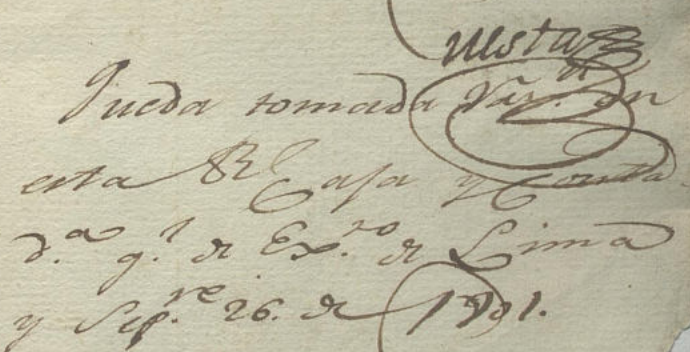 Queda tomada Raz.ⁿ en
esta R.l Caja y Conta
d.a g.l de Ex.to de Lima
y Sep.re 26. de